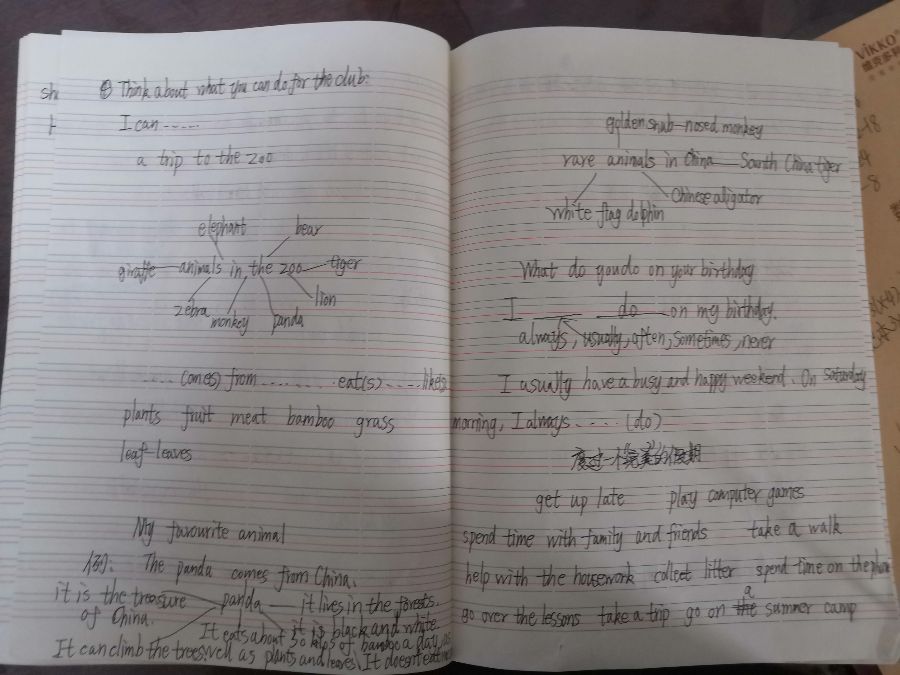 ④ Think about what you can do for the club:
I can ......
a trip to the zoo
elephant bear
giraffe animals in the zoo tiger
zebra monkey panda lion
...... come(s) from ......... eat(s) ..... likes
plants fruit meat bamboo grass
leaf-leaves
My favourite animal
例: The panda comes from China.
it is the treasure of China. panda it lives in the forests.
it is black and white.
It eats about 30 kilos of bamboo a day, as
It can climb the trees. well as plants and leaves. It doesn't eat
golden snub-nosed monkey
rare animals in China South China tiger
Chinese alligator
white flag dolphin
What do you do on your birthday
I ____ do ____ on my birthday.
always, usually, often, sometimes, never
I usually have a busy and happy weekend. On Saturday
morning, I always ..... (do)
度过一个"完美"的假期
get up late play computer games
spend time with family and friends take a walk
help with the housework collect litter spend time on the phone
go over the lessons take a trip go on a summer camp
VIKKO
-18
-8